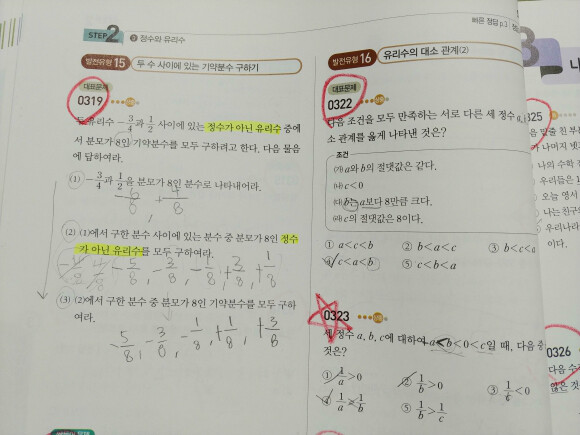 STEP 2
❷ 정수와 유리수
빠른 정답 p.3
발전유형 15 두 수 사이에 있는 기약분수 구하기
대표문제
0319
두 유리수 -3/4과 1/2 사이에 있는 정수가 아닌 유리수 중에
서 분모가 8인 기약분수를 모두 구하려고 한다. 다음 물음
에 답하여라.
(1) -3/4과 1/2을 분모가 8인 분수로 나타내어라.
-6/8, +4/8
(2) (1)에서 구한 분수 사이에 있는 분수 중 분모가 8인 정수
가 아닌 유리수를 모두 구하여라.
-5/8, -3/8, -1/8, +3/8, +1/8
(3) (2)에서 구한 분수 중 분모가 8인 기약분수를 모두 구하
여라.
-5/8, -3/8, -1/8, +1/8, +3/8
발전유형 16 유리수의 대소 관계(2)
대표문제
0322
다음 조건을 모두 만족하는 서로 다른 세 정수 a,
소 관계를 옳게 나타낸 것은?
조건
㈎ a와 b의 절댓값은 같다.
㈏ c<0
㈐ b는 a보다 8만큼 크다.
㈑ c의 절댓값은 8이다.
① a<c<b ② b<a<c ③ b<c<a
④ c<a<b ⑤ c<b<a
0323
세 정수 a, b, c에 대하여 a<b<0<c일 때, 다음 중
것은?
① 1/a>0 ② 1/b>0 ③ 1/c<0
④ 1/a>1/b ⑤ 1/b>1/c
3
나
0325
음 밑줄 친 부
가 나머지 넷
나의 수학
우리들은 1
오늘 영서
나는 친구
우리나라
이다.
0326
다음 수
않은 것